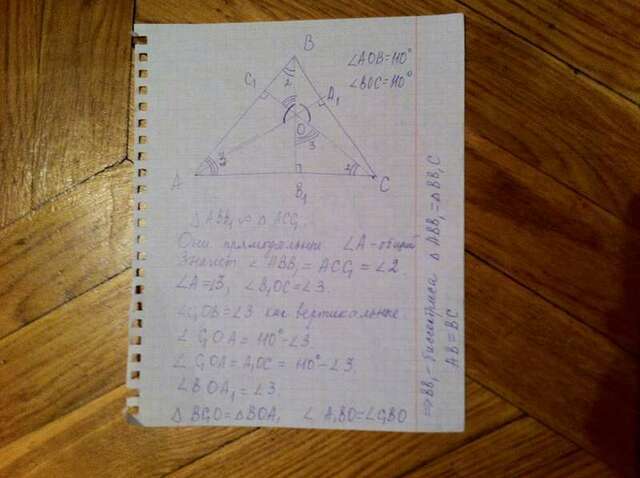 B
∠AOB=110°
∠BOC=110°
C₁
2
A₁
O
3
A
3
2
C
B₁
△ABB₁ ∾ △ACC₁
Они прямоугольные ∠A-общий
Значит ∠ABB₁ = ACC₁ = ∠2.
∠A=∠3, ∠B₁OC=∠3.
∠C₁OB=∠3 как вертикальные
∠C₁OA = 110°-∠3
∠C₁OA = A₁OC = 110°-∠3.
∠BOA₁=∠3.
△BC₁O=△BOA₁ ∠A₁BO=∠C₁BO
⇒BB₁-биссектриса △ABB₁=△BB₁C
AB=BC